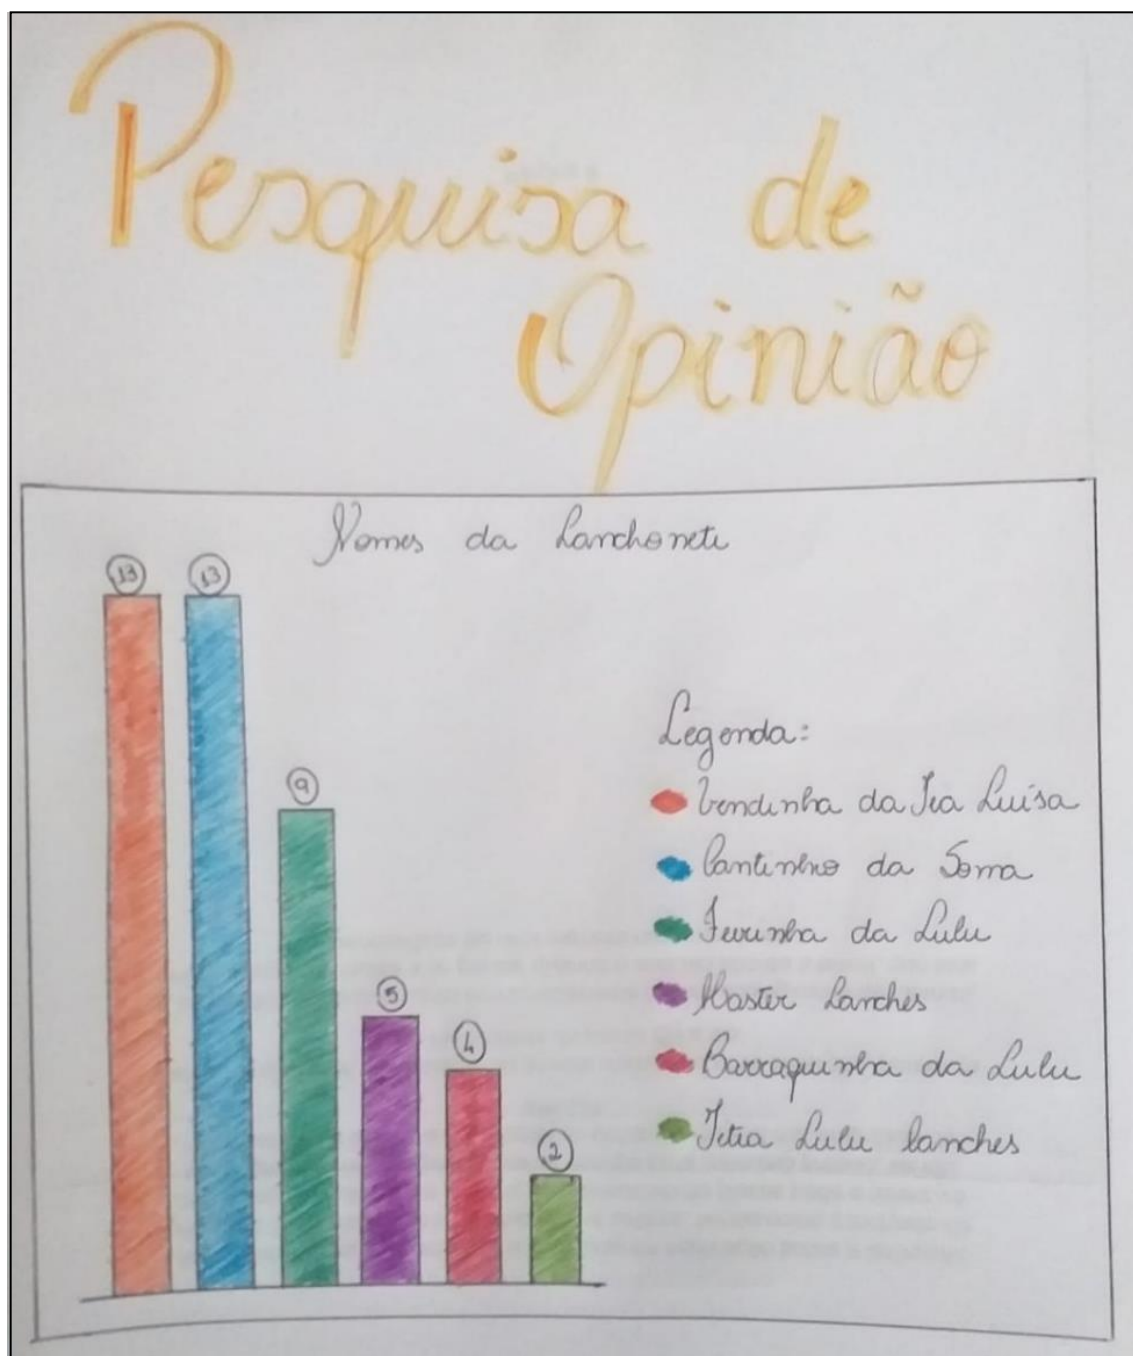 Pesquisa de
Opinião
Nomes da Lanchonete
13
13
9
5
4
2
Legenda:
Vendinha da Tia Luísa
Cantinho da Soma
Feirinha da Lulu
Master Lanches
Barraquinha da Lulu
Titia Lulu lanches